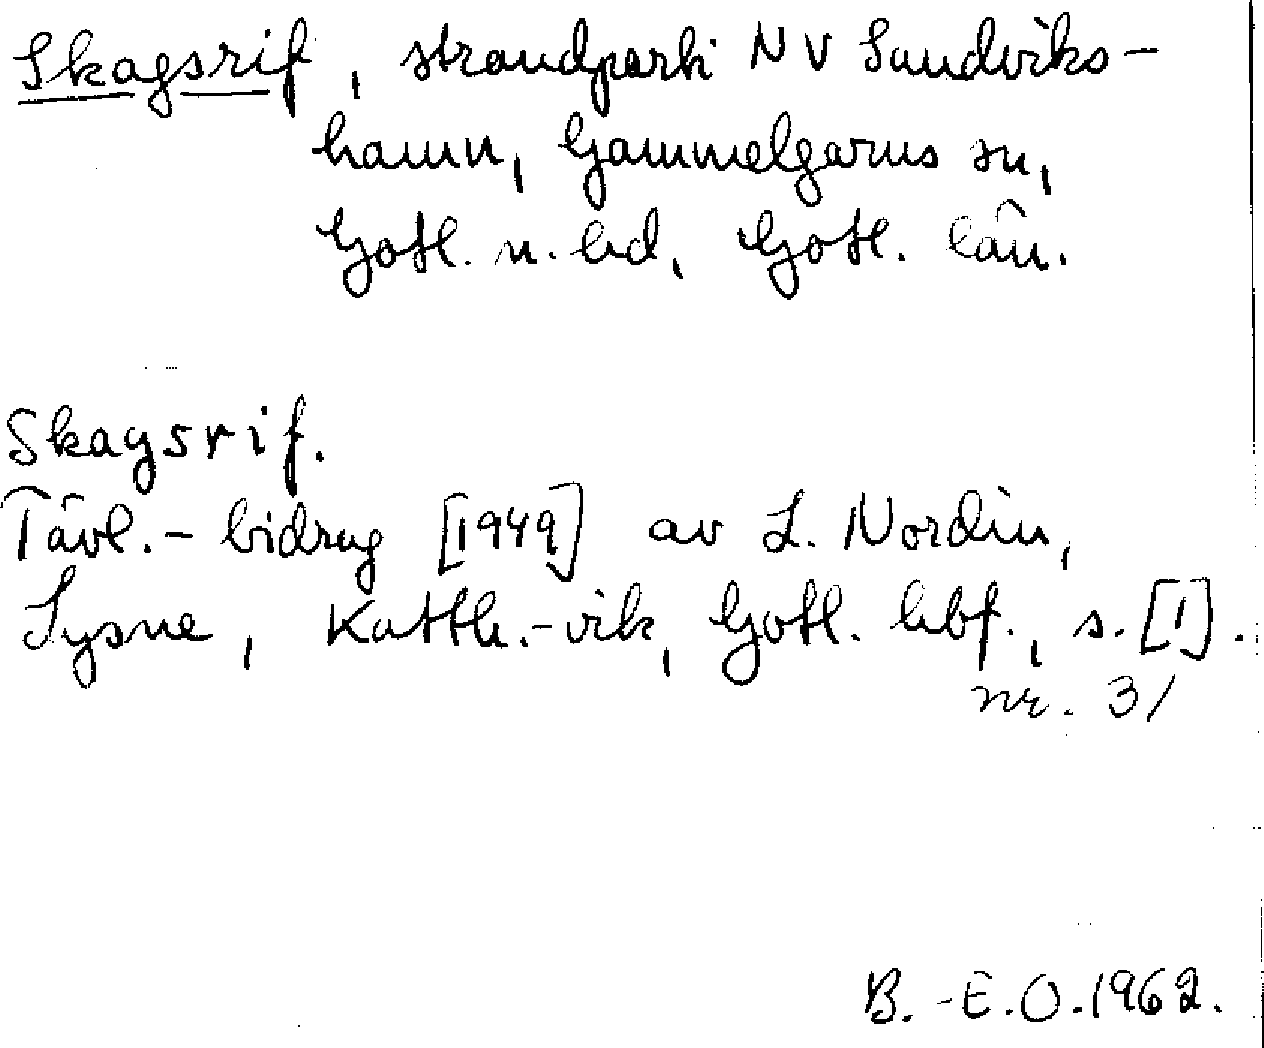 Skagsrif, strandparti NV Sandviks-
hamn, Gammelgarns sn,
Gotl. n. hd, Gotl. län.
Skagsrif.
Tävl.-bidrag [1949] av L. Nordin,
Sysne, Katth.-vik, Gotl. hbf., s. [1].
nr. 31
B.-E.O.1962.